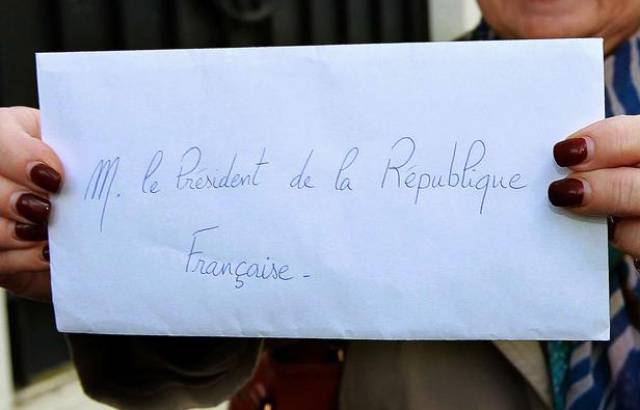 M. le Président de la République
Française -